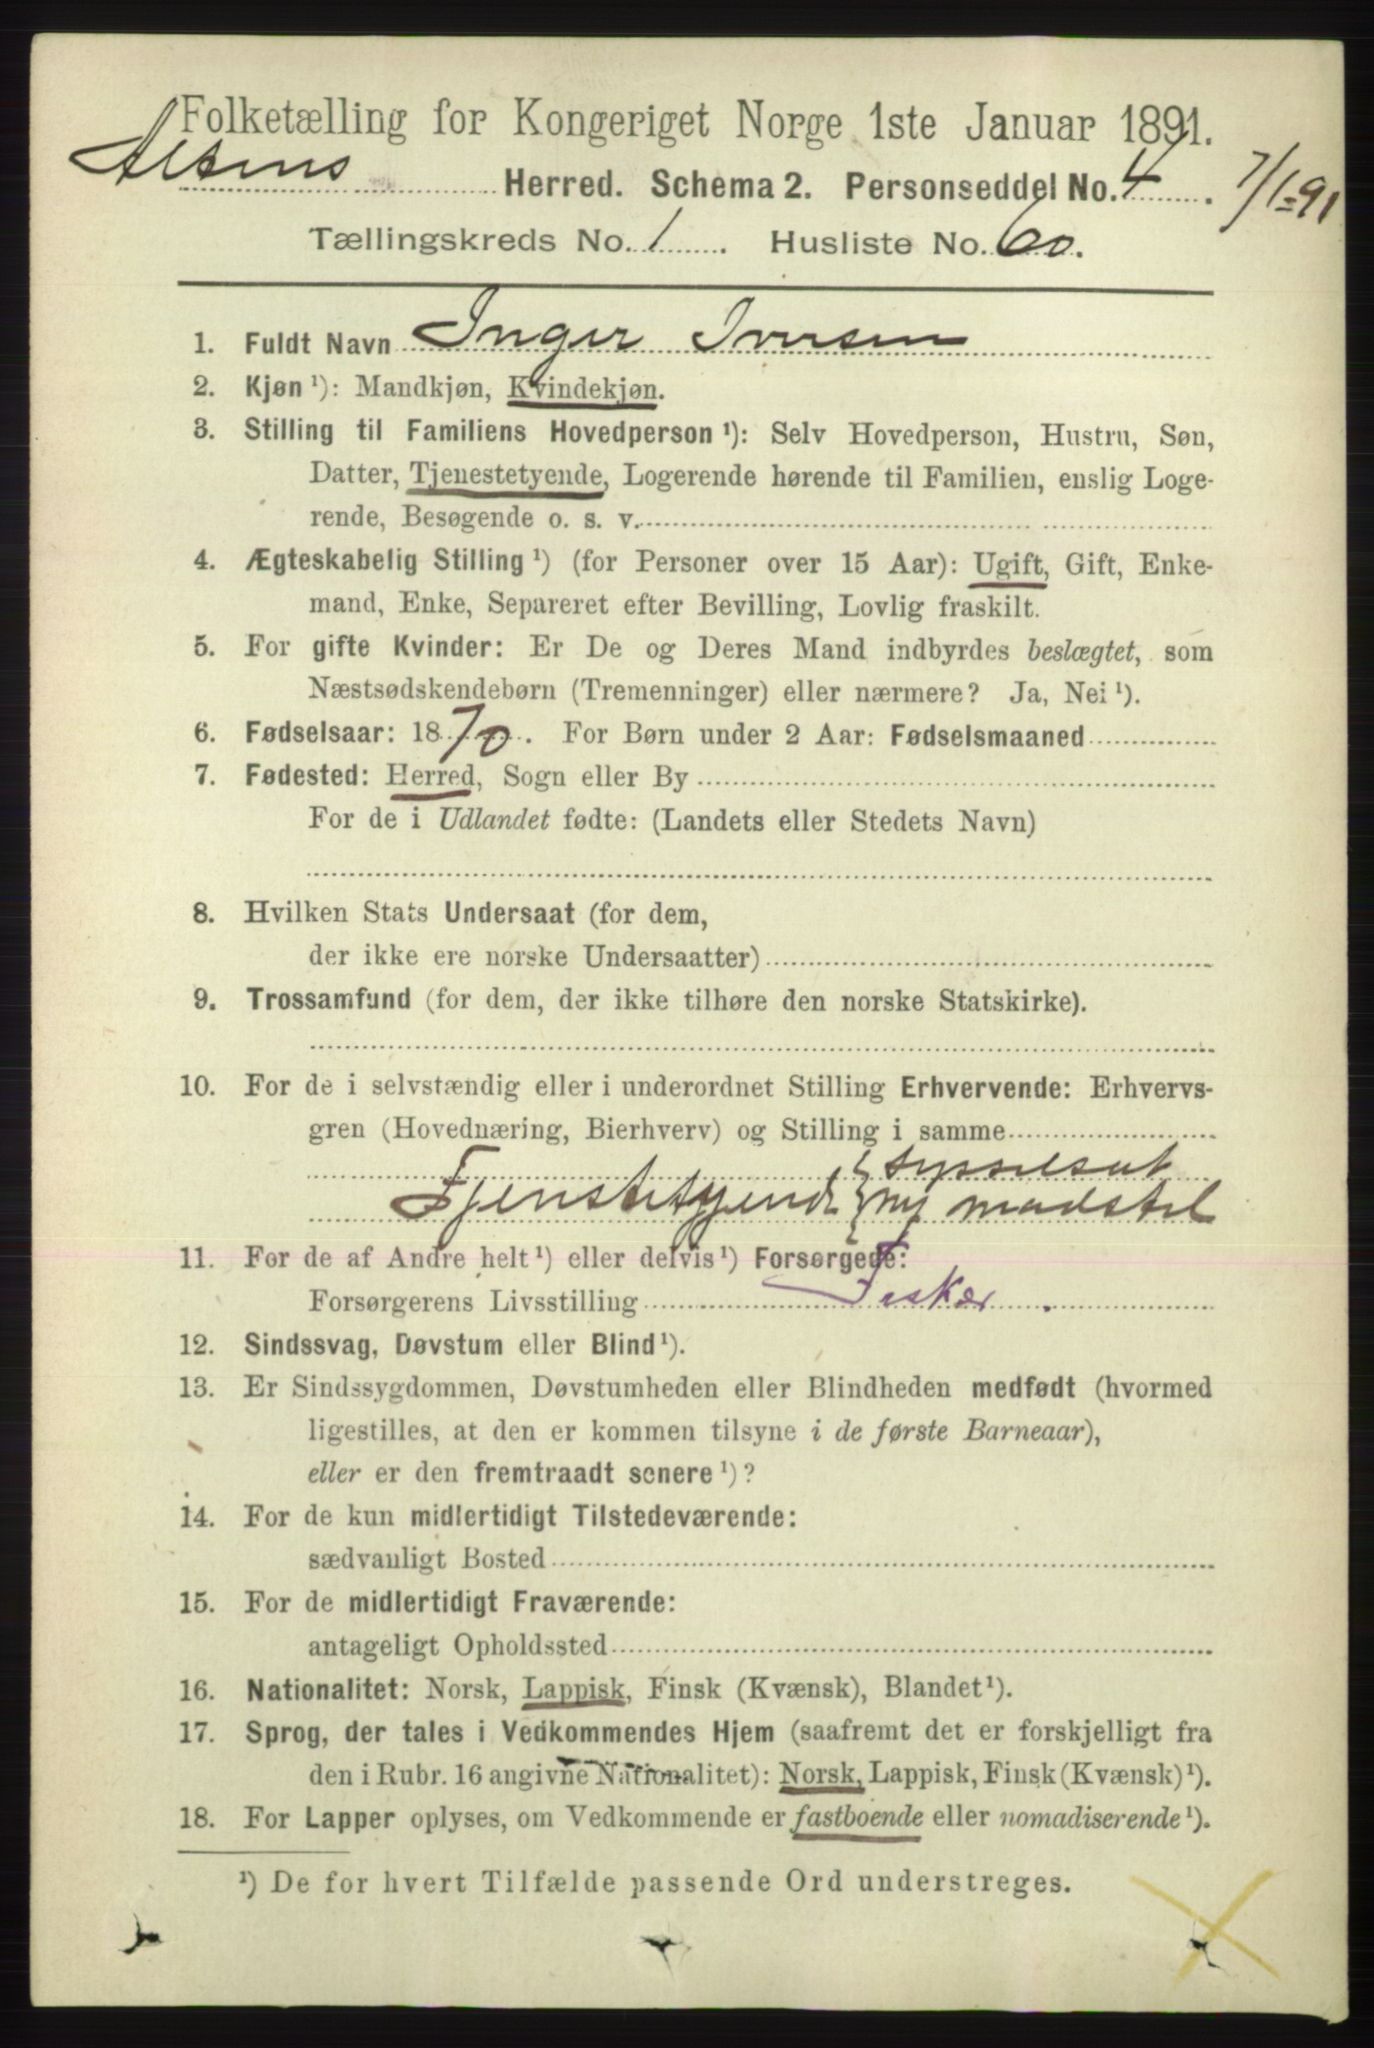 Folketælling for Kongeriget Norge 1ste Januar 1891.
Altens Herred. Schema 2. Personseddel No. 4. 7/1-91
Tællingskreds No. 1. Husliste No. 60.
1. Fuldt Navn Inger Iversen
2. Kjøn ¹): Mandkjøn, Kvindekjøn.
3. Stilling til Familiens Hovedperson ¹): Selv Hovedperson, Hustru, Søn,
Datter, Tjenestetyende, Logerende hørende til Familien, enslig Loge-
rende, Besøgende o. s. v.
4. Ægteskabelig Stilling ¹) (for Personer over 15 Aar): Ugift, Gift, Enke-
mand, Enke, Separeret efter Bevilling, Lovlig fraskilt.
5. For gifte Kvinder: Er De og Deres Mand indbyrdes beslægtet, som
Næstsødskendebørn (Tremenninger) eller nærmere? Ja, Nei ¹).
6. Fødselsaar: 1870. For Børn under 2 Aar: Fødselsmaaned
7. Fødested: Herred, Sogn eller By
For de i Udlandet fødte: (Landets eller Stedets Navn)
8. Hvilken Stats Undersaat (for dem,
der ikke ere norske Undersaatter)
9. Trossamfund (for dem, der ikke tilhøre den norske Statskirke).
10. For de i selvstændig eller i underordnet Stilling Erhvervende: Erhvervs-
gren (Hovednæring, Bierhverv) og Stilling i samme
sysselsat
Tjenestetyende { m/ madstel
11. For de af Andre helt ¹) eller delvis ¹) Forsørgede:
Forsørgerens Livsstilling Fisker.
12. Sindssvag, Døvstum eller Blind ¹).
13. Er Sindssygdommen, Døvstumheden eller Blindheden medfødt (hvormed
ligestilles, at den er kommen tilsyne i de første Barneaar),
eller er den fremtraadt senere ¹)?
14. For de kun midlertidigt Tilstedeværende:
sædvanligt Bosted
15. For de midlertidigt Fraværende:
antageligt Opholdssted
16. Nationalitet: Norsk, Lappisk, Finsk (Kvænsk), Blandet ¹).
17. Sprog, der tales i Vedkommendes Hjem (saafremt det er forskjelligt fra
den i Rubr. 16 angivne Nationalitet): Norsk, Lappisk, Finsk (Kvænsk) ¹).
18. For Lapper oplyses, om Vedkommende er fastboende eller nomadiserende ¹).
¹) De for hvert Tilfælde passende Ord understreges.